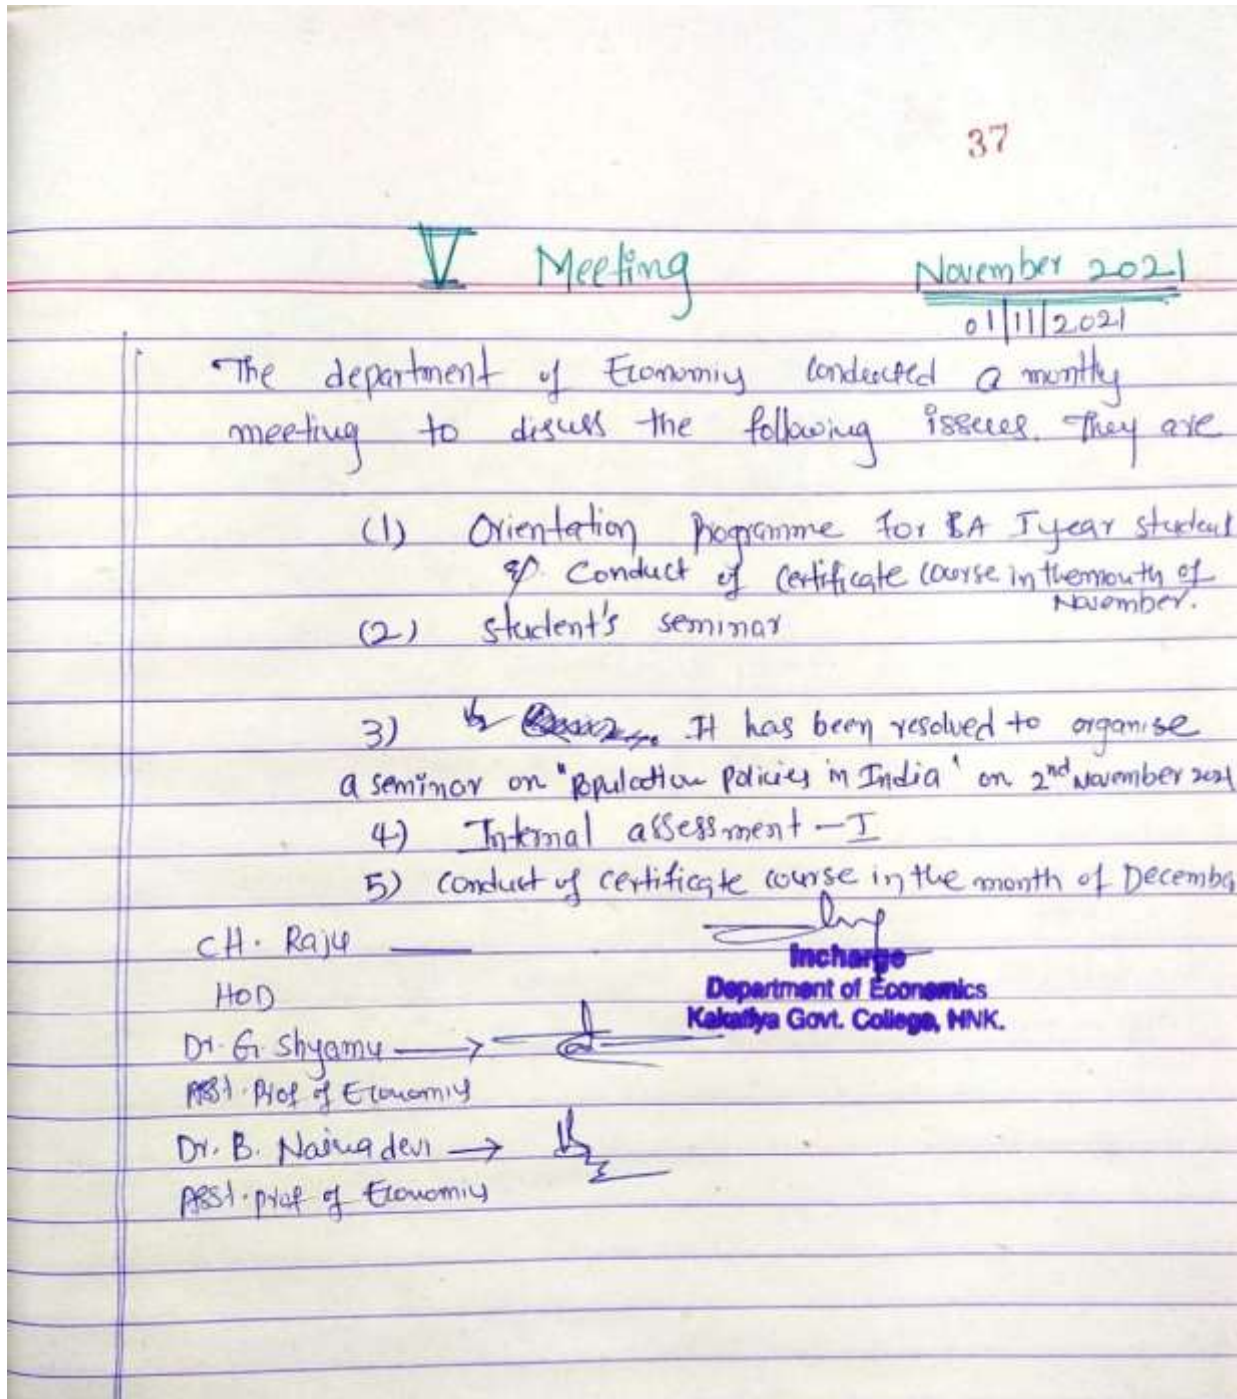 37
V Meeting November 2021
01/11/2021
The department of Economics conducted a montly
meeting to disuss the following issues. They are
(1) Orientation Programme for BA I year student
& Conduct of certificate course in the month of
November.
(2) student's seminar
3) It has been resolved to organise
a seminar on "Population Policies in India" on 2nd November 2021
4) Internal assessment - I
5) conduct of certificate course in the month of Decembe
CH. Raju
Incharge
HOD
Department of Economics
Kakatiya Govt. College, HNK.
Dr. G. Shyamu
Asst. Prof of Economics
Dr. B. Naina devi
Asst. prof of Economics